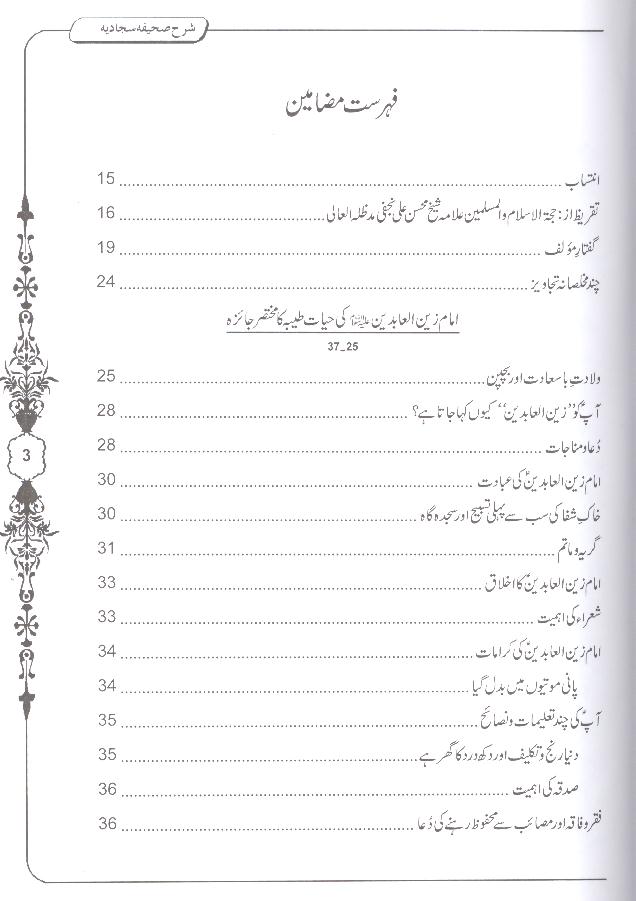 شرح صحیفہ سجادیہ
فہرست مضامین
انتساب ........ 15
تقریظ از: حجۃ الاسلام والمسلمین علامہ شیخ محسن علی نجفی مدظلہ العالی ........ 16
گفتارِ مؤلف ........ 19
چند مخلصانہ تجاویز ........ 24
امام زین العابدین علیہ السلام کی حیات طیبہ کا مختصر جائزہ
37_25
ولادتِ باسعادت اور بچپن ........ 25
آپؑ کو ’’زین العابدین‘‘ کیوں کہا جاتا ہے؟ ........ 28
دُعا و مناجات ........ 28
امام زین العابدینؑ کی عبادت ........ 30
خاکِ شفا کی سب سے پہلی تسبیح اور سجدہ گاہ ........ 30
گریہ و ماتم ........ 31
امام زین العابدینؑ کا اخلاق ........ 33
شعراء کی اہمیت ........ 33
امام زین العابدینؑ کی کرامات ........ 34
پانی موتیوں میں بدل گیا ........ 34
آپؑ کی چند تعلیمات و نصائح ........ 35
دنیا رنج و تکلیف اور دکھ درد کا گھر ہے ........ 35
صدقہ کی اہمیت ........ 36
فقر و فاقہ اور مصائب سے محفوظ رہنے کی دُعا ........ 36
3